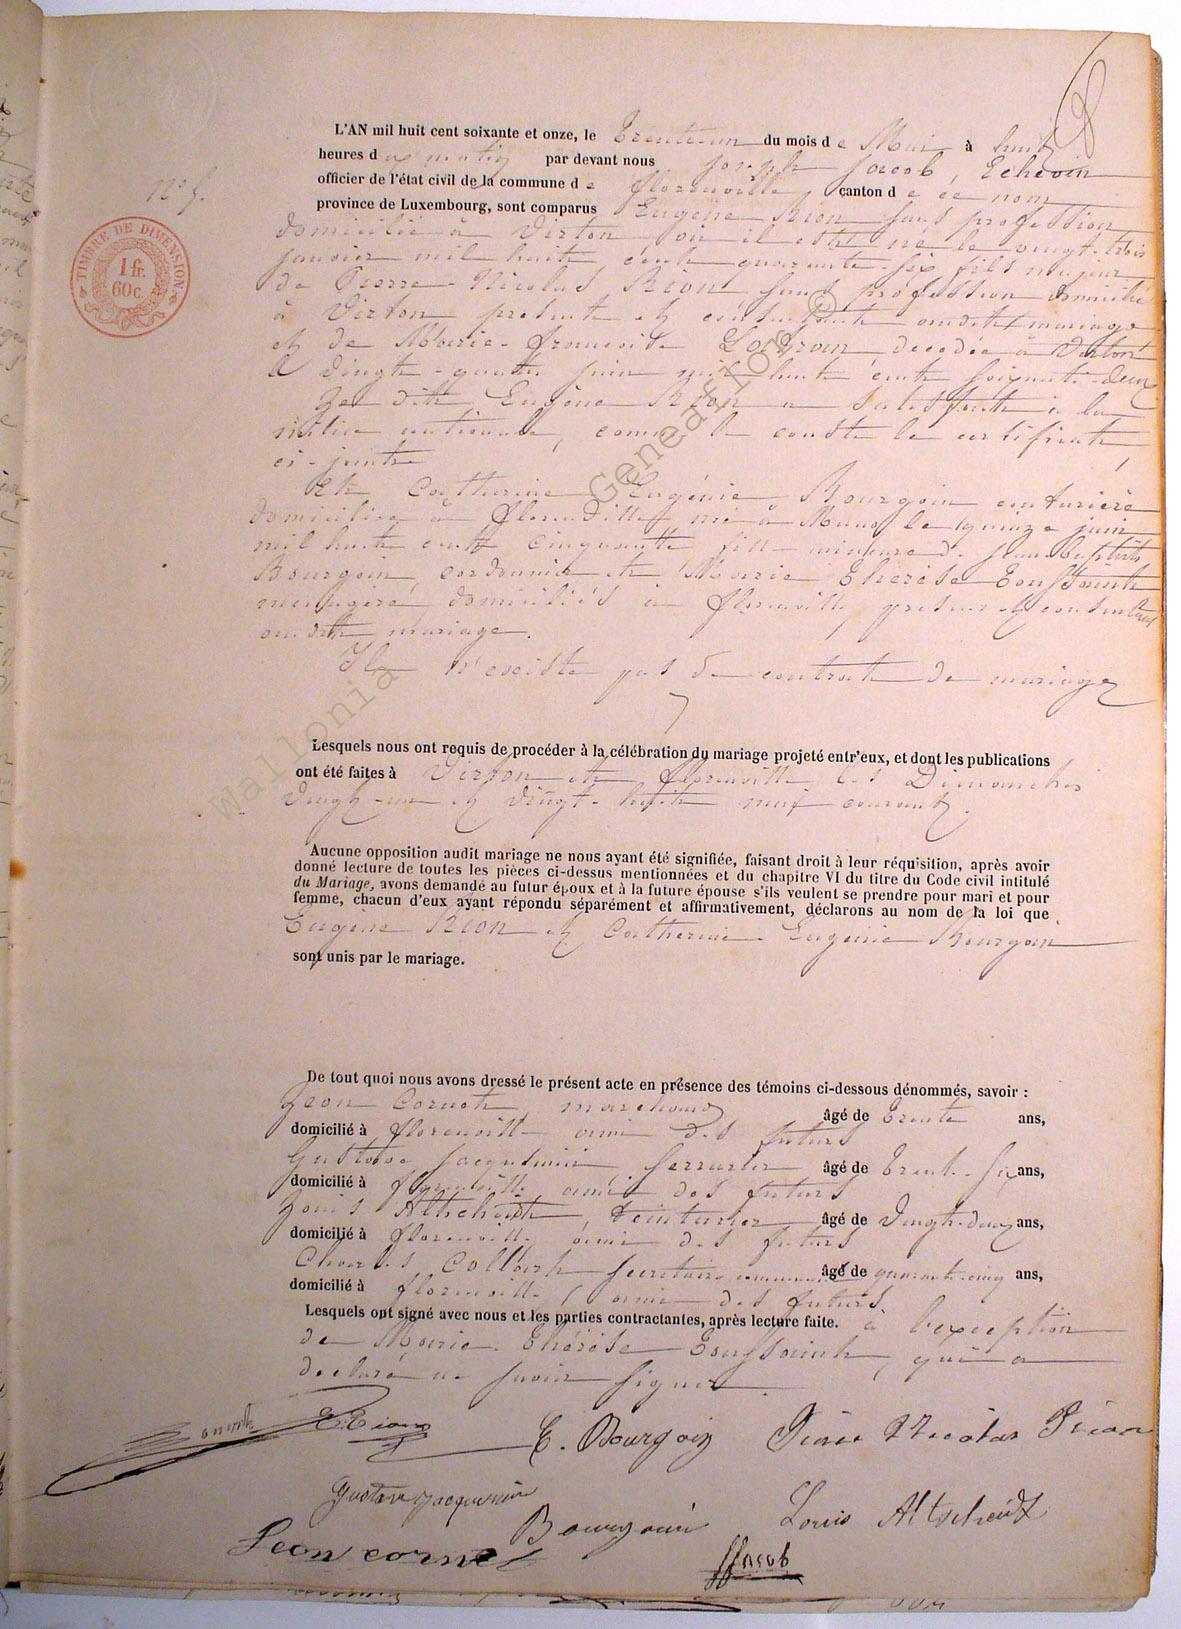 N° 5.
TIMBRE DE DIMENSION
1 fr.
60 c.
L'AN mil huit cent soixante et onze, le Trente un du mois de Mai à huit
heures du matin par devant nous Joseph Jacob, Echevin
officier de l'état civil de la commune de Florenville, canton de ce nom
province de Luxembourg, sont comparus Eugène Rion sans profession
domicilié à Virton où il est né le vingt-trois
janvier mil huit cent quarante-six fils majeur
de Pierre-Nicolas Rion sans profession domicilié
à Virton présent et consentant audit mariage
et de Marie-françoise décédée à Virton
le vingt-quatre juin mil huit cent soixante-deux
Le dit Eugène Rion a satisfait à la
milice nationale, comme le conste le certificat
ci-joint
Et Catherine Eugénie Bourgoin couturière
domiciliée à florenville née à le quinze juin
mil huit cent cinquante fille mineure de Jean baptiste
Bourgoin, cordonnier et Marie Thérèse Toussaint
ménagère, domiciliés à florenville, présens et consentans
audit mariage.
Il n'existe pas de contrat de mariage
Lesquels nous ont requis de procéder à la célébration du mariage projeté entr'eux, et dont les publications
ont été faites à Virton et florenville les Dimanches
vingt-un et vingt-huit mai courant.
Aucune opposition audit mariage ne nous ayant été signifiée, faisant droit à leur réquisition, après avoir
donné lecture de toutes les pièces ci-dessus mentionnées et du chapitre VI du titre du Code civil intitulé
du Mariage, avons demandé au futur époux et à la future épouse s'ils veulent se prendre pour mari et pour
femme, chacun d'eux ayant répondu séparément et affirmativement, déclarons au nom de la loi que
Eugène Rion et Catherine-Eugénie Bourgoin
sont unis par le mariage.
De tout quoi nous avons dressé le présent acte en présence des témoins ci-dessous dénommés, savoir :
Léon Cornet, marchand âgé de Trente ans,
domicilié à florenville ami des futurs
Gustave Jacquemin, serrurier âgé de Trente-six ans,
domicilié à florenville ami des futurs
Louis Altscheidt, teinturier âgé de Vingt-deux ans,
domicilié à florenville, ami des futurs
Charles Collard secrétaire communal âgé de quarante-cinq ans,
domicilié à florenville, ami des futurs
Lesquels ont signé avec nous et les parties contractantes, après lecture faite. à l'exception
de Marie-Thérèse Toussaint, qui a
déclaré ne savoir signer.
E Rion
E. Bourgoin
Pierre Nicolas Rion
Gustave Jacquemin
Bourgoin
Louis Altscheidt
Leon cornet
JJacob
wallonia Geneasion ©